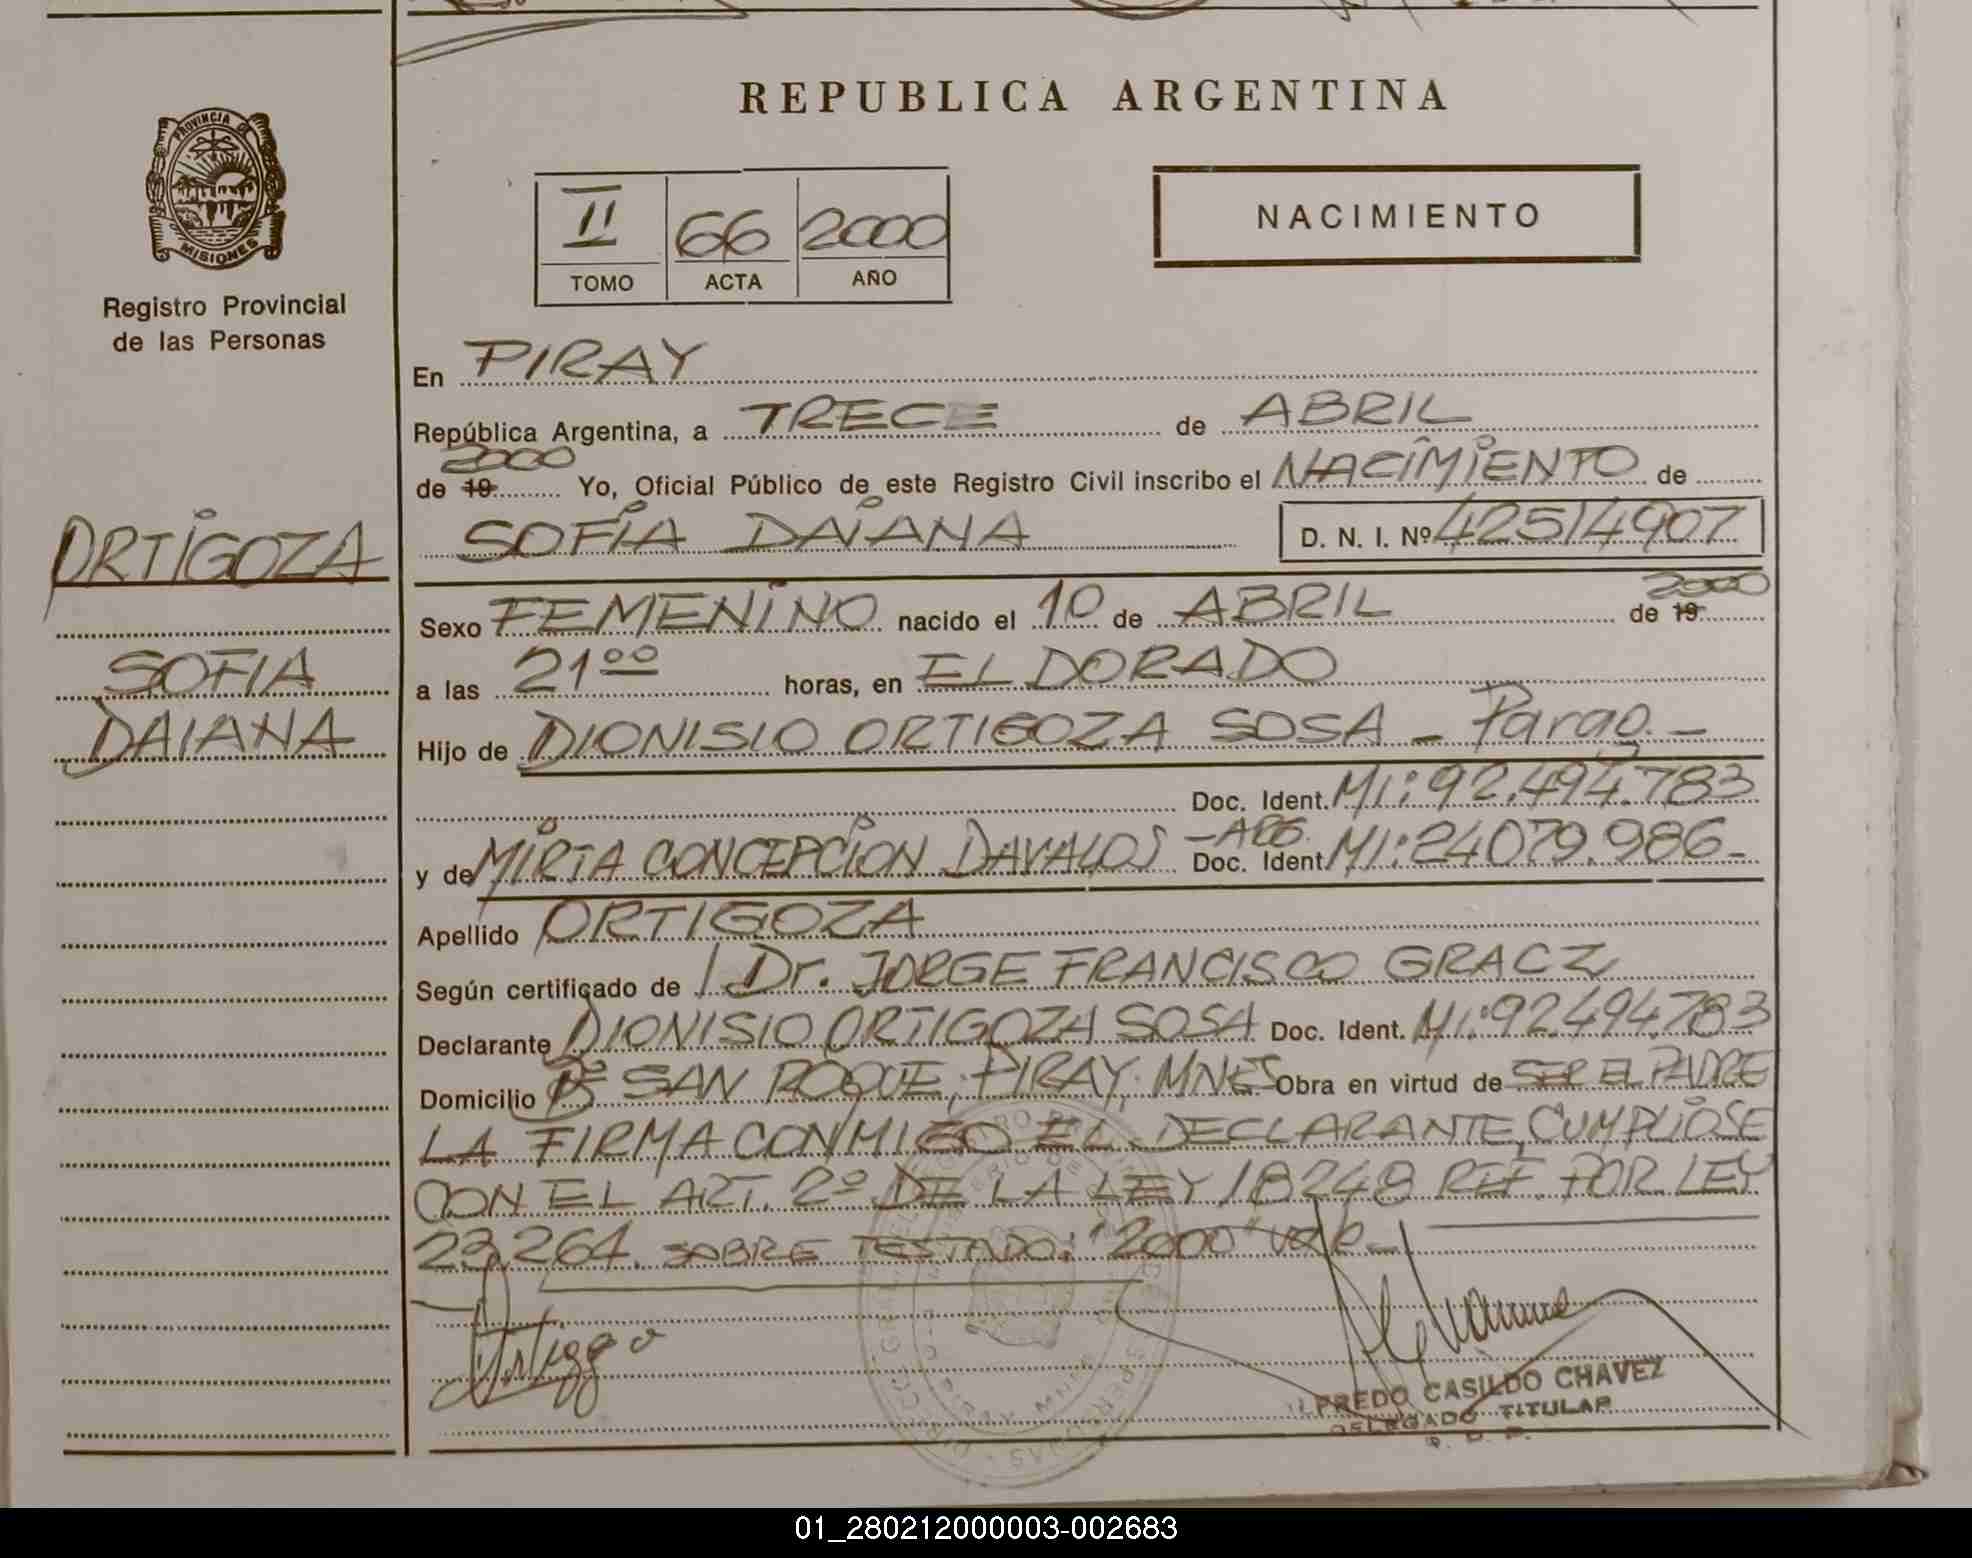 REPUBLICA ARGENTINA
PROVINCIA DE
MISIONES
Registro Provincial
de las Personas
II 66 2000
TOMO ACTA AÑO
NACIMIENTO
En PIRAY
República Argentina, a TRECE de ABRIL
2000
de 19 Yo, Oficial Público de este Registro Civil inscribo el NACIMIENTO de
SOFIA DAIANA D. N. I. Nº 42514907
ORTIGOZA
SOFIA
DAIANA
Sexo FEMENINO nacido el 10 de ABRIL de 19 2000
a las 21⁰⁰ horas, en ELDORADO
Hijo de DIONISIO ORTIGOZA SOSA - Parag. -
Doc. Ident. MI: 92.494.783
y de MIRTA CONCEPCION DAVALOS - ARG. Doc. Ident. MI: 24079.986-
Apellido ORTIGOZA
Según certificado de Dr. JORGE FRANCISCO GRACZ
Declarante DIONISIO ORTIGOZA SOSA Doc. Ident. MI: 92.494.783
Domicilio Bº SAN ROQUE, PIRAY, MNES Obra en virtud de SER EL PADRE
LA FIRMA CONMIGO EL DECLARANTE, CUMPLIOSE
CON EL ART. 2º DE LA LEY 18248 REF. POR LEY
23.264. SOBRE TESTADO: "2000" vale-
ALFREDO CASILDO CHAVEZ
DELEGADO TITULAR
R. D. P.
01_280212000003-002683